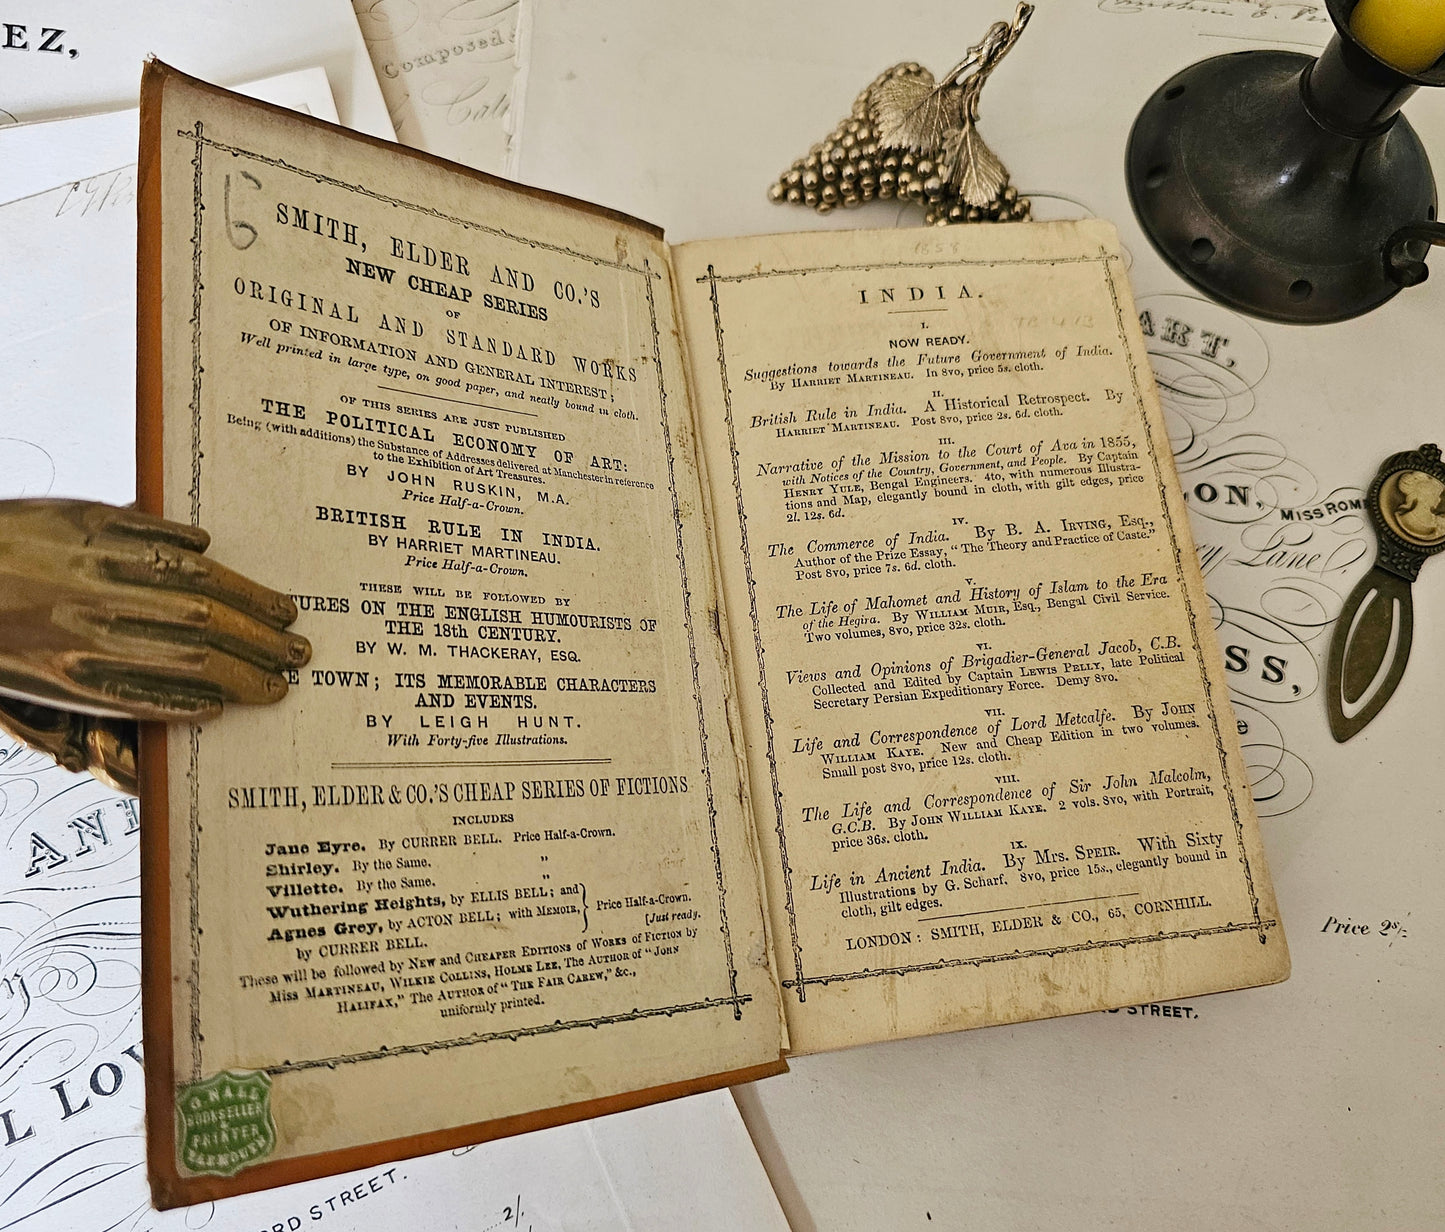 EZ,
Composed
SMITH, ELDER AND CO.'S
NEW CHEAP SERIES
OF
ORIGINAL AND STANDARD WORKS
OF INFORMATION AND GENERAL INTEREST;
Well printed in large type, on good paper, and neatly bound in cloth.
OF THIS SERIES ARE JUST PUBLISHED
THE POLITICAL ECONOMY OF ART:
Being (with additions) the Substance of Addresses delivered at Manchester in reference
to the Exhibition of Art Treasures.
BY JOHN RUSKIN, M.A.
Price Half-a-Crown.
BRITISH RULE IN INDIA.
BY HARRIET MARTINEAU.
Price Half-a-Crown.
THESE WILL BE FOLLOWED BY
TURES ON THE ENGLISH HUMOURISTS OF
THE 18th CENTURY.
BY W. M. THACKERAY, ESQ.
E TOWN; ITS MEMORABLE CHARACTERS
AND EVENTS.
BY LEIGH HUNT.
With Forty-five Illustrations.
SMITH, ELDER & CO.'S CHEAP SERIES OF FICTIONS
INCLUDES
Jane Eyre. By CURRER BELL. Price Half-a-Crown.
Shirley. By the Same. "
Villette. By the Same. "
Wuthering Heights, by ELLIS BELL; and
Agnes Grey, by ACTON BELL; with MEMOIR, } Price Half-a-Crown.
by CURRER BELL. [Just ready.
These will be followed by NEW and CHEAPER EDITIONS of WORKS of FICTION by
Miss MARTINEAU, WILKIE COLLINS, HOLME LEE, The AUTHOR of "JOHN
HALIFAX," The AUTHOR of "THE FAIR CAREW," &c.,
uniformly printed.
G NALL
BOOKSELLER
&
PRINTER
YARMOUTH
1858
INDIA.
I.
NOW READY.
Suggestions towards the Future Government of India.
By HARRIET MARTINEAU. In 8vo, price 5s. cloth.
II.
British Rule in India. A Historical Retrospect. By
HARRIET MARTINEAU. Post 8vo, price 2s. 6d. cloth.
III.
Narrative of the Mission to the Court of Ava in 1855,
with Notices of the Country, Government, and People. By Captain
HENRY YULE, Bengal Engineers. 4to, with numerous Illustra-
tions and Map, elegantly bound in cloth, with gilt edges, price
2l. 12s. 6d.
IV.
The Commerce of India. By B. A. IRVING, Esq.,
Author of the Prize Essay, "The Theory and Practice of Caste."
Post 8vo, price 7s. 6d. cloth.
V.
The Life of Mahomet and History of Islam to the Era
of the Hegira. By WILLIAM MUIR, Esq., Bengal Civil Service.
Two volumes, 8vo, price 32s. cloth.
VI.
Views and Opinions of Brigadier-General Jacob, C.B.
Collected and Edited by Captain LEWIS PELLY, late Political
Secretary Persian Expeditionary Force. Demy 8vo.
VII.
Life and Correspondence of Lord Metcalfe. By JOHN
WILLIAM KAYE. New and Cheap Edition in two volumes.
Small post 8vo, price 12s. cloth.
VIII.
The Life and Correspondence of Sir John Malcolm,
G.C.B. By JOHN WILLIAM KAYE. 2 vols. 8vo, with Portrait,
price 36s. cloth.
IX.
Life in Ancient India. By MRS. SPEIR. With Sixty
Illustrations by G. Scharf. 8vo, price 15s., elegantly bound in
cloth, gilt edges.
LONDON: SMITH, ELDER & CO., 65, CORNHILL.
ART,
ON, MISS ROM
Lane
SS,
Price 2s/
STREET.
AND
L LOV
RD STREET.
2/